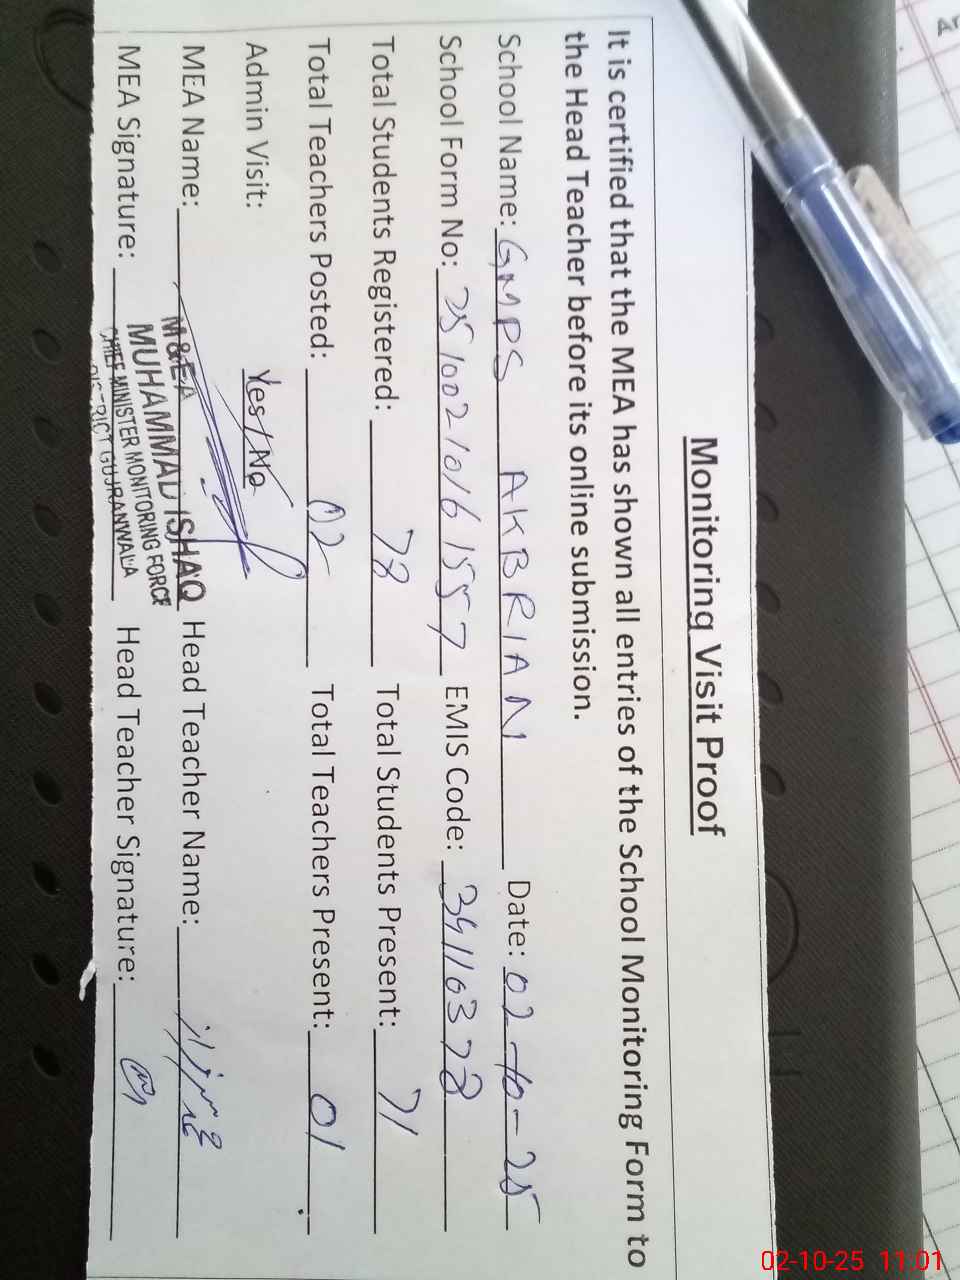 Monitoring Visit Proof
It is certified that the MEA has shown all entries of the School Monitoring Form to
the Head Teacher before its online submission.
School Name: GMPS AKBRIAN Date: 02-10-25
School Form No: 25100210161557 EMIS Code: 34110378
Total Students Registered: 78 Total Students Present: 71
Total Teachers Posted: 02 Total Teachers Present: 01
Admin Visit: Yes/No
MEA Name: Head Teacher Name:
MEA Signature: Head Teacher Signature:
M&EA
MUHAMMAD ISHAQ
CHIEF MINISTER MONITORING FORCE
DISTRICT GUJRANWALA
02-10-25 11:01